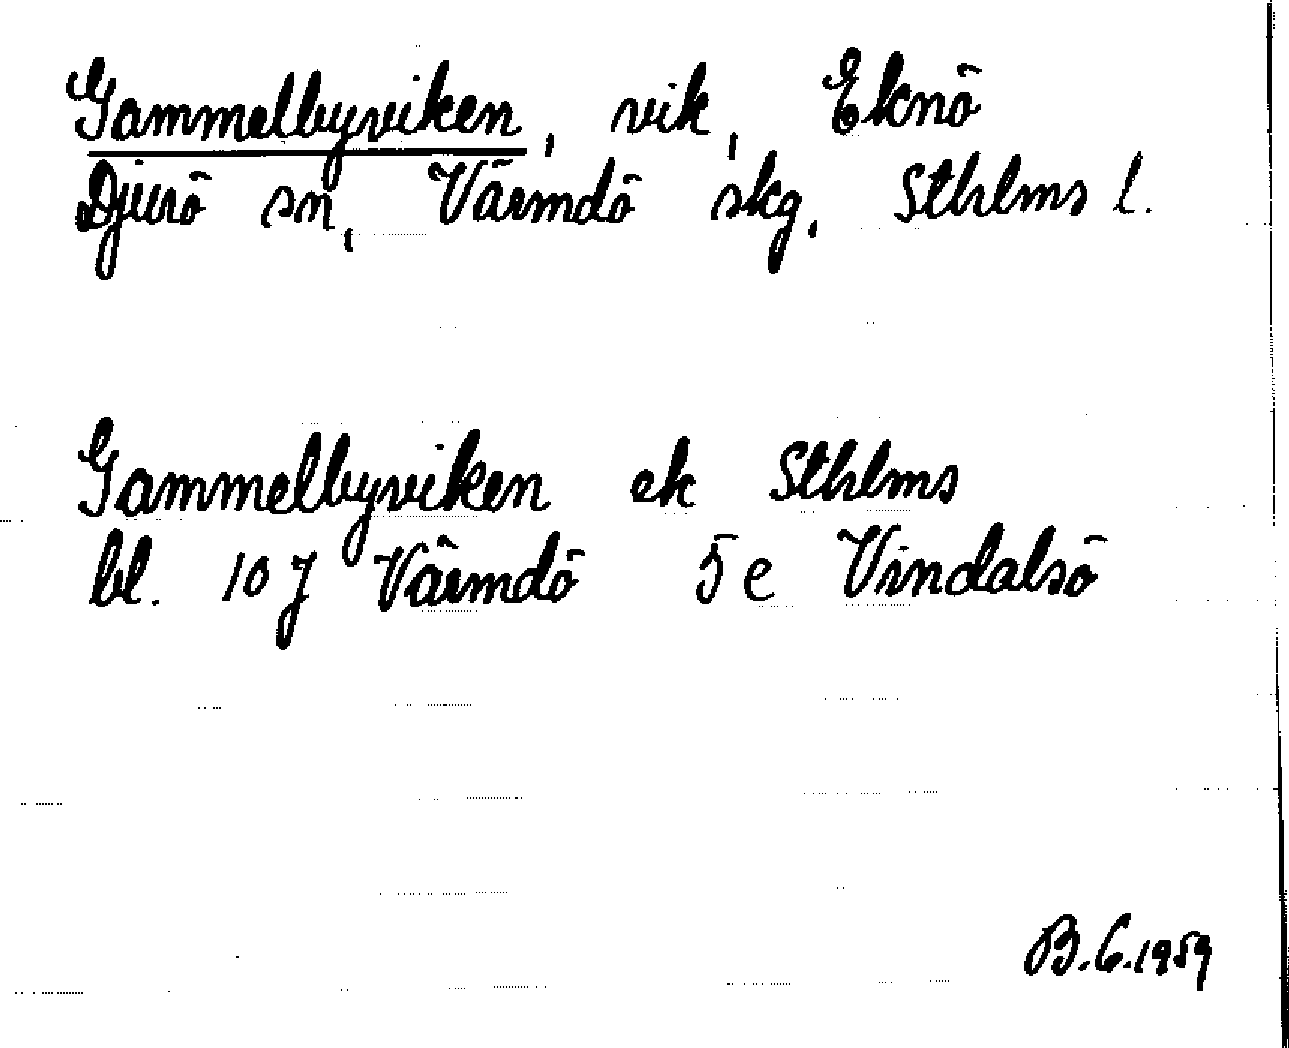 Gammelbyviken, vik, Eknö
Djurö sn, Värmdö skg, Sthlms l.
Gammelbyviken ek Sthlms
bl. 10 J Värmdö 5 e Vindalsö
B.G. 1959